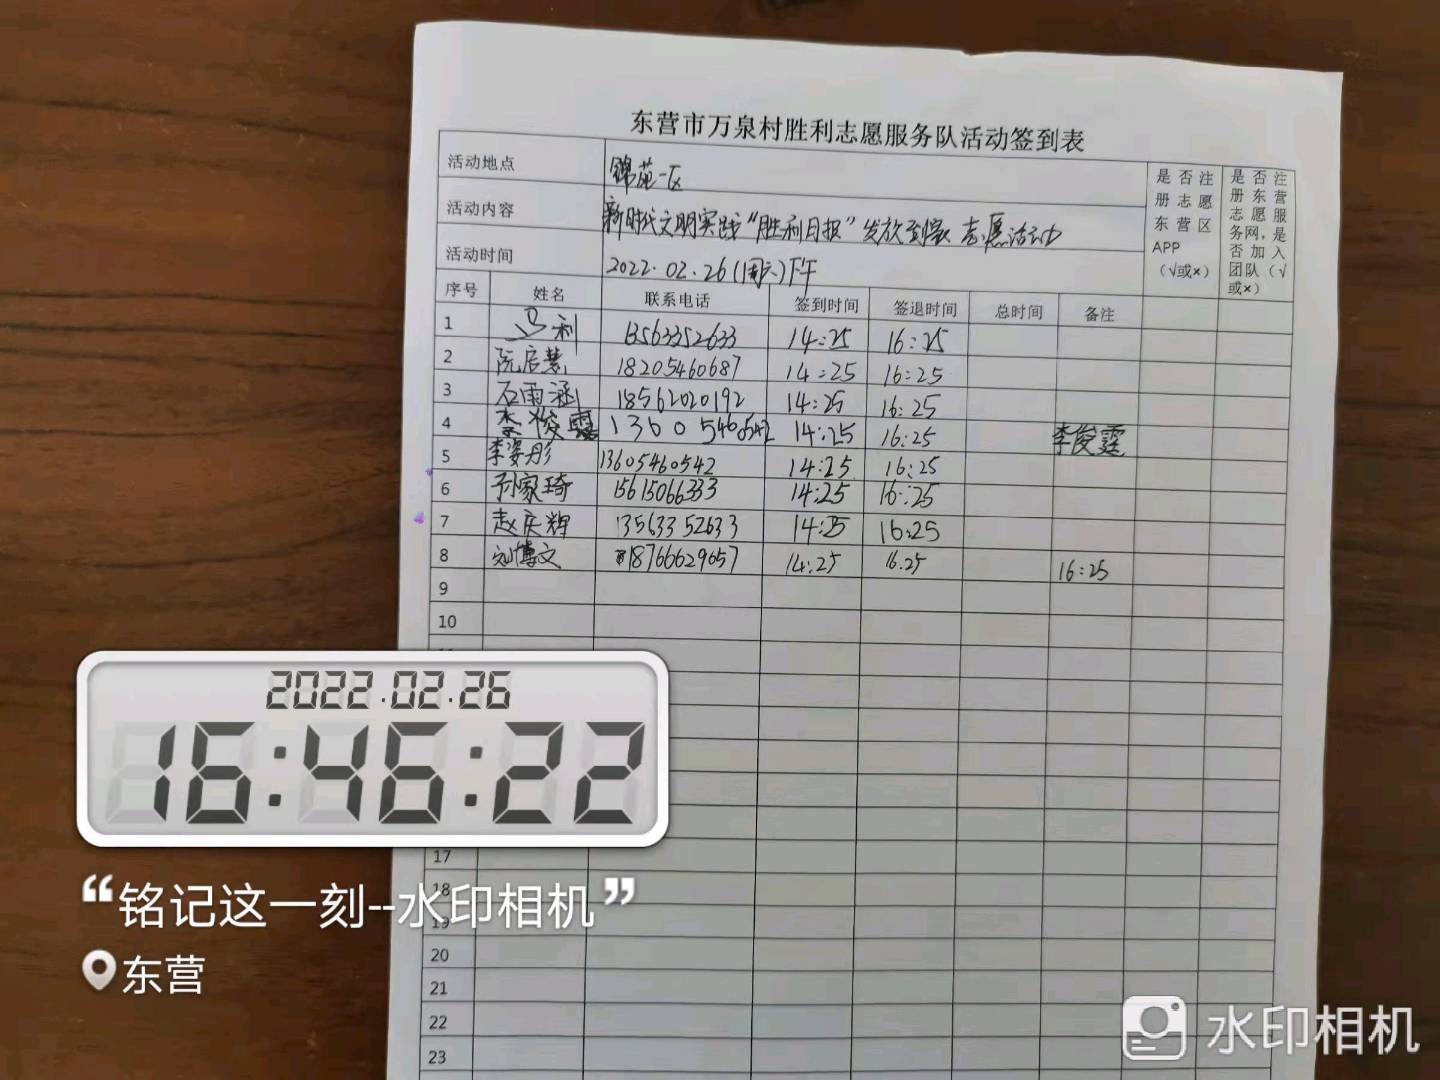 东营市万泉村胜利志愿服务队活动签到表
活动地点 锦苑一区
活动内容 新时代文明实践“胜利月报”发放到家志愿活动
活动时间 2022.02.26(周六)下午
是否注册志愿东营区APP（√或×）
是否注册东营志愿服务网，是否加入团队（√或×）
序号 姓名 联系电话 签到时间 签退时间 总时间 备注
1 马利 13563352633 14:25 16:25
2 阮启慧 18205460687 14:25 16:25
3 石雨涵 18562020192 14:25 16:25
4 李俊霆 13605460542 14:25 16:25 李俊霆
5 李姿彤 13605460542 14:25 16:25
6 孙家琦 15615066333 14:25 16:25
7 赵庆辉 13563352633 14:25 16:25
8 刘博文 18766629057 14:25 16.25 16:25
9
10
17
18
19
20
21
22
23
2022.02.26
16:46:22
“铭记这一刻--水印相机”
东营
水印相机